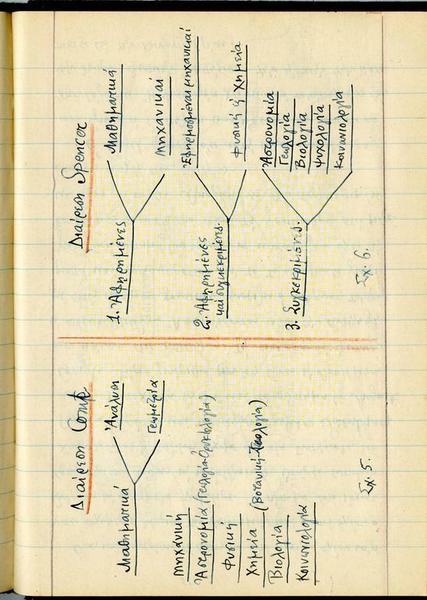 Διαίρεση Comte
Μαθηματικά
Ἀνάλυση
Γεωμετρία
Μηχανική
Ἀστρονομία (Γεωλογία-Ὀρυκτολογία)
Φυσική
Χημεία
Βιολογία (Βοτανική-Ζωολογία)
Κοινωνιολογία
Σχ. 5.
Διαίρεση Spencer
1. Ἀφηρημένες
Μαθηματικά
Μηχανικαί
2. Ἀφηρημένες
καί συγκεκριμένες.
Ἐφηρμοσμέναι μηχανικαί
Φυσική ἤ Χημεία
3. Συγκεκριμένες.
Ἀστρονομία
Γεωλογία
Βιολογία
Ψυχολογία
Κοινωνιολογία
Σχ. 6.